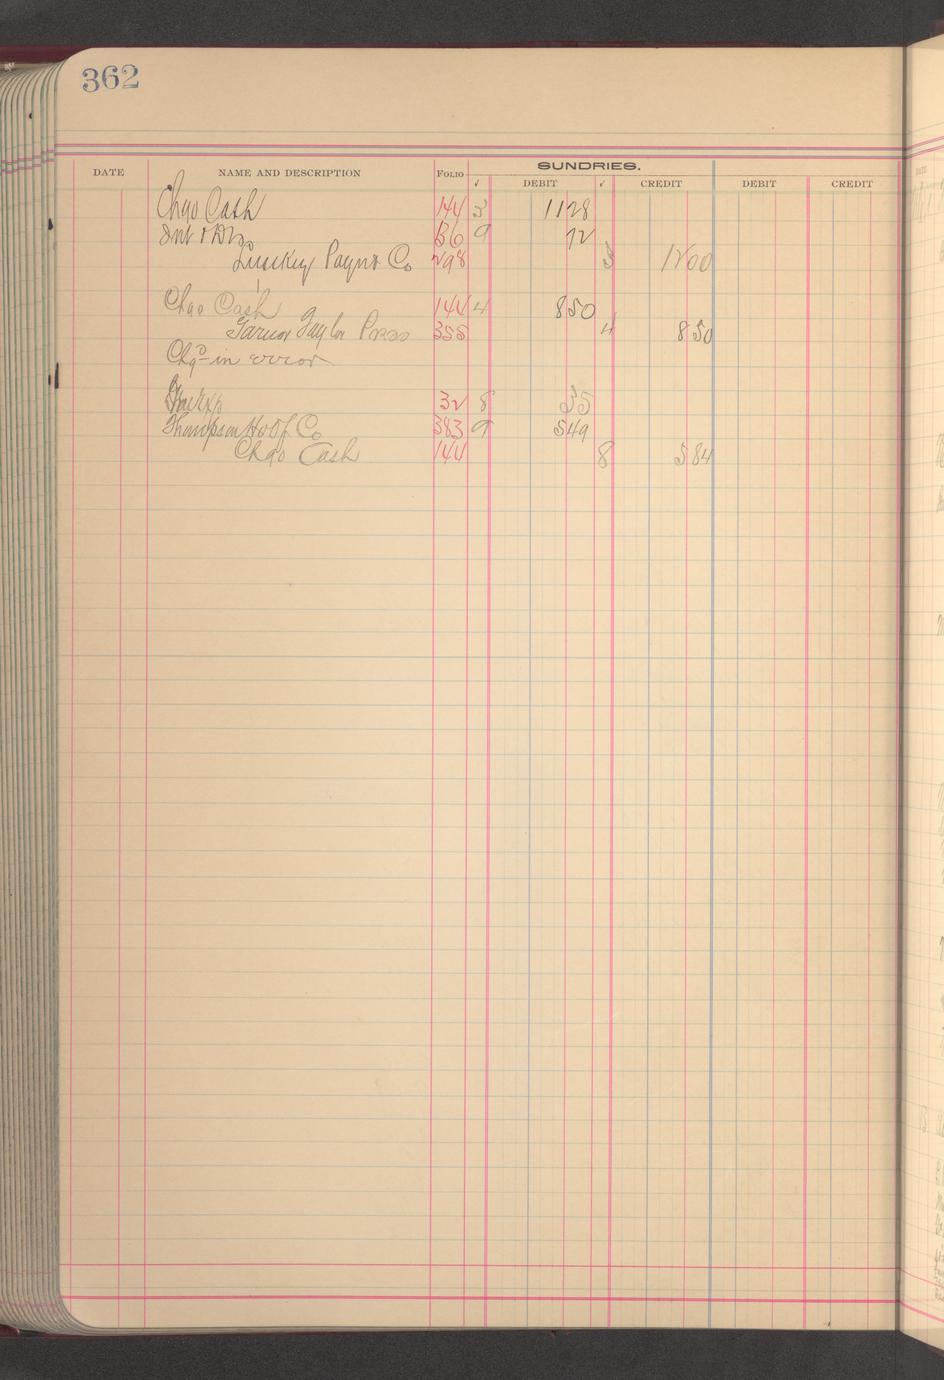 362
SUNDRIES.
DATE NAME AND DESCRIPTION FOLIO ✓ DEBIT ✓ CREDIT DEBIT CREDIT
Chgo Cash 144 3 1128
Int & Dis 36 9 72
Luckey Payne & Co 298 3 1200
Chgo Cash 144 4 850
Taylor Press 355 4 850
Chgd in error
Exp 32 8 35
Thompson Co 383 9 549
Chgo Cash 144 8 584